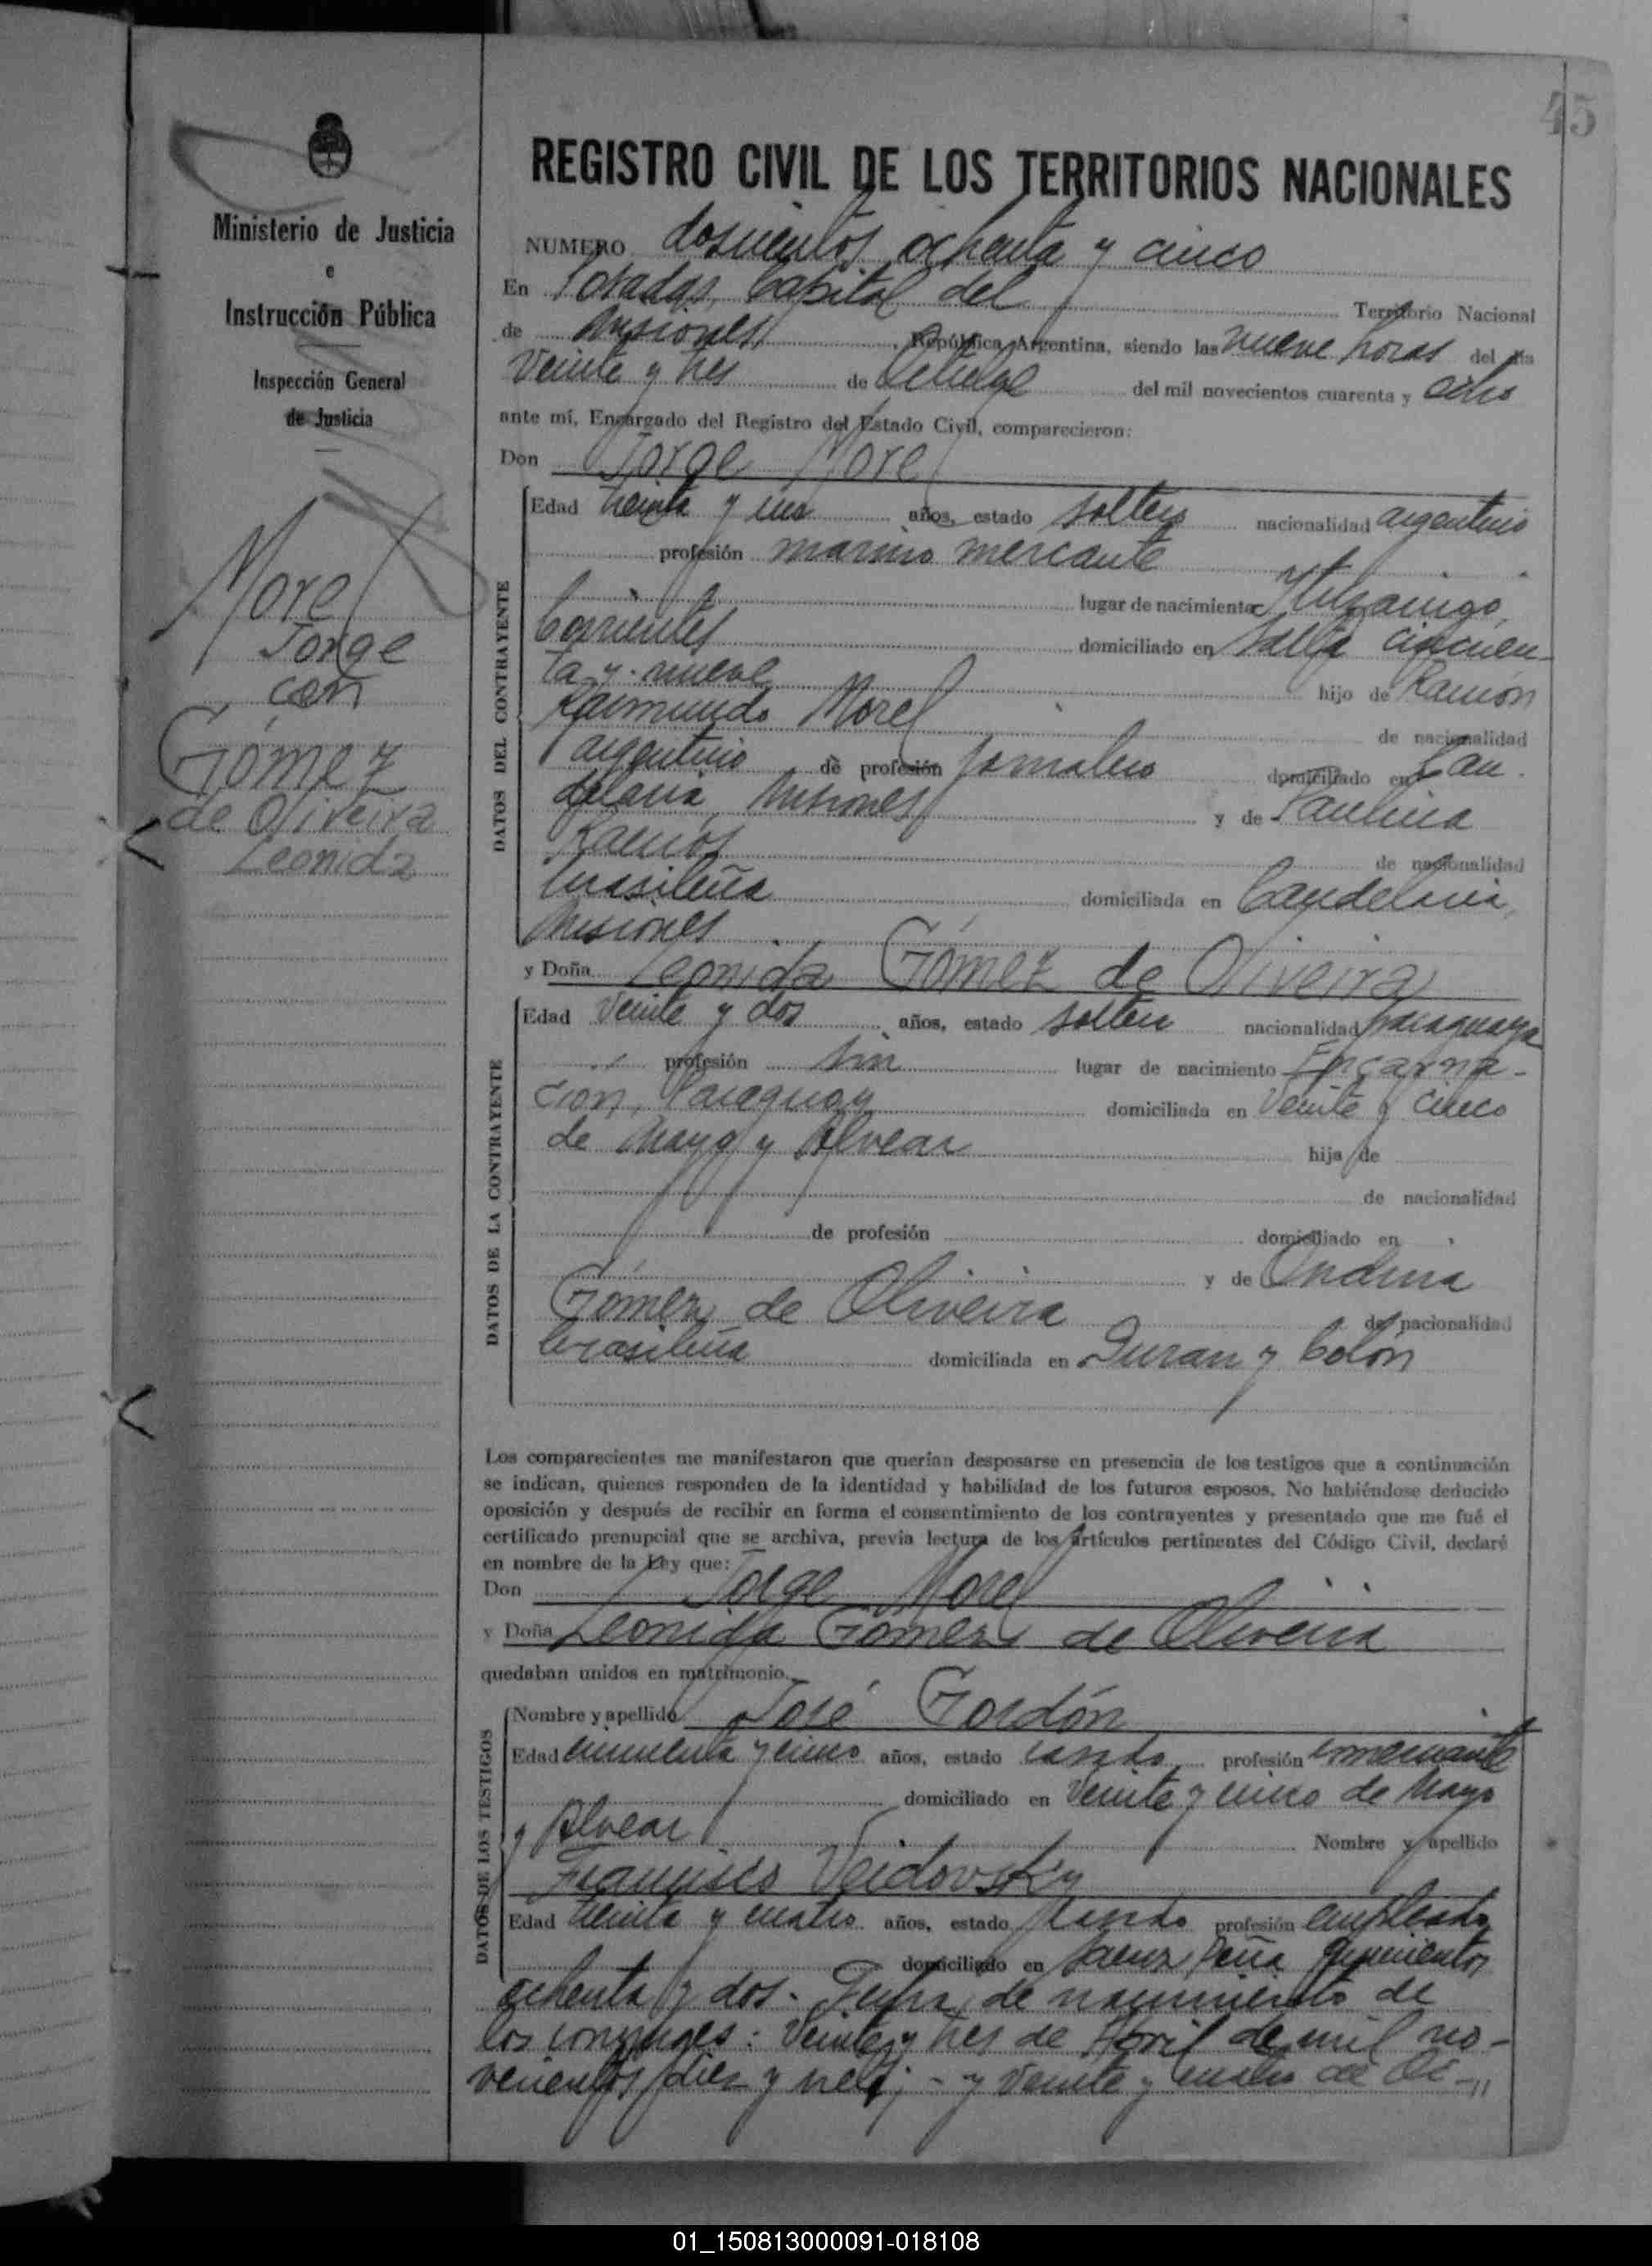 45
Ministerio de Justicia
e
Instrucción Pública
Inspección General
de Justicia
Morel
Jorge
con
Gómez
de Oliveira
Leonida
REGISTRO CIVIL DE LOS TERRITORIOS NACIONALES
NUMERO doscientos ochenta y cinco
En Posadas, Capital del Territorio Nacional
de Misiones, República Argentina, siendo las nueve horas del día
veinte y tres de Octubre del mil novecientos cuarenta y ocho
ante mí, Encargado del Registro del Estado Civil, comparecieron:
Don Jorge Morel
DATOS DEL CONTRAYENTE
Edad treinta y un años, estado soltero nacionalidad argentino
profesión marino mercante
lugar de nacimiento Ituzaingo,
Corrientes domiciliado en Salta cincuen-
ta y nueve hijo de Ramón
Raimundo Morel de nacionalidad
argentino de profesión jornalero domiciliado en Can-
delaria Misiones y de Paulina
Ramos de nacionalidad
brasileña domiciliada en Candelaria,
Misiones
y Doña Leonida Gómez de Oliveira
DATOS DE LA CONTRAYENTE
Edad veinte y dos años, estado soltera nacionalidad paraguaya
profesión sin lugar de nacimiento Encarna-
ción, Paraguay domiciliada en Veinte y cinco
de Mayo y Alvear hija de
de nacionalidad
de profesión domiciliado en
y de Ondina
Gómez de Oliveira de nacionalidad
brasileña domiciliada en Duran y Colón
Los comparecientes me manifestaron que querían desposarse en presencia de los testigos que a continuación
se indican, quienes responden de la identidad y habilidad de los futuros esposos. No habiéndose deducido
oposición y después de recibir en forma el consentimiento de los contrayentes y presentado que me fué el
certificado prenupcial que se archiva, previa lectura de los artículos pertinentes del Código Civil, declaré
en nombre de la Ley que:
Don Jorge Morel
y Doña Leonida Gómez de Oliveira
quedaban unidos en matrimonio.
DATOS DE LOS TESTIGOS
Nombre y apellido José Gordón
Edad cincuenta y cinco años, estado casado profesión comerciante
domiciliado en Veinte y cinco de Mayo
y Alvear Nombre y apellido
Francisco Veidovsky
Edad treinta y cuatro años, estado casado profesión empleado
domiciliado en Saenz Peña quinientos
ochenta y dos. Fecha de nacimiento de
los conyuges: Veinte y tres de Abril de mil no-
vecientos diez y siete; - y veinte y cuatro de Di-
01_150813000091-018108